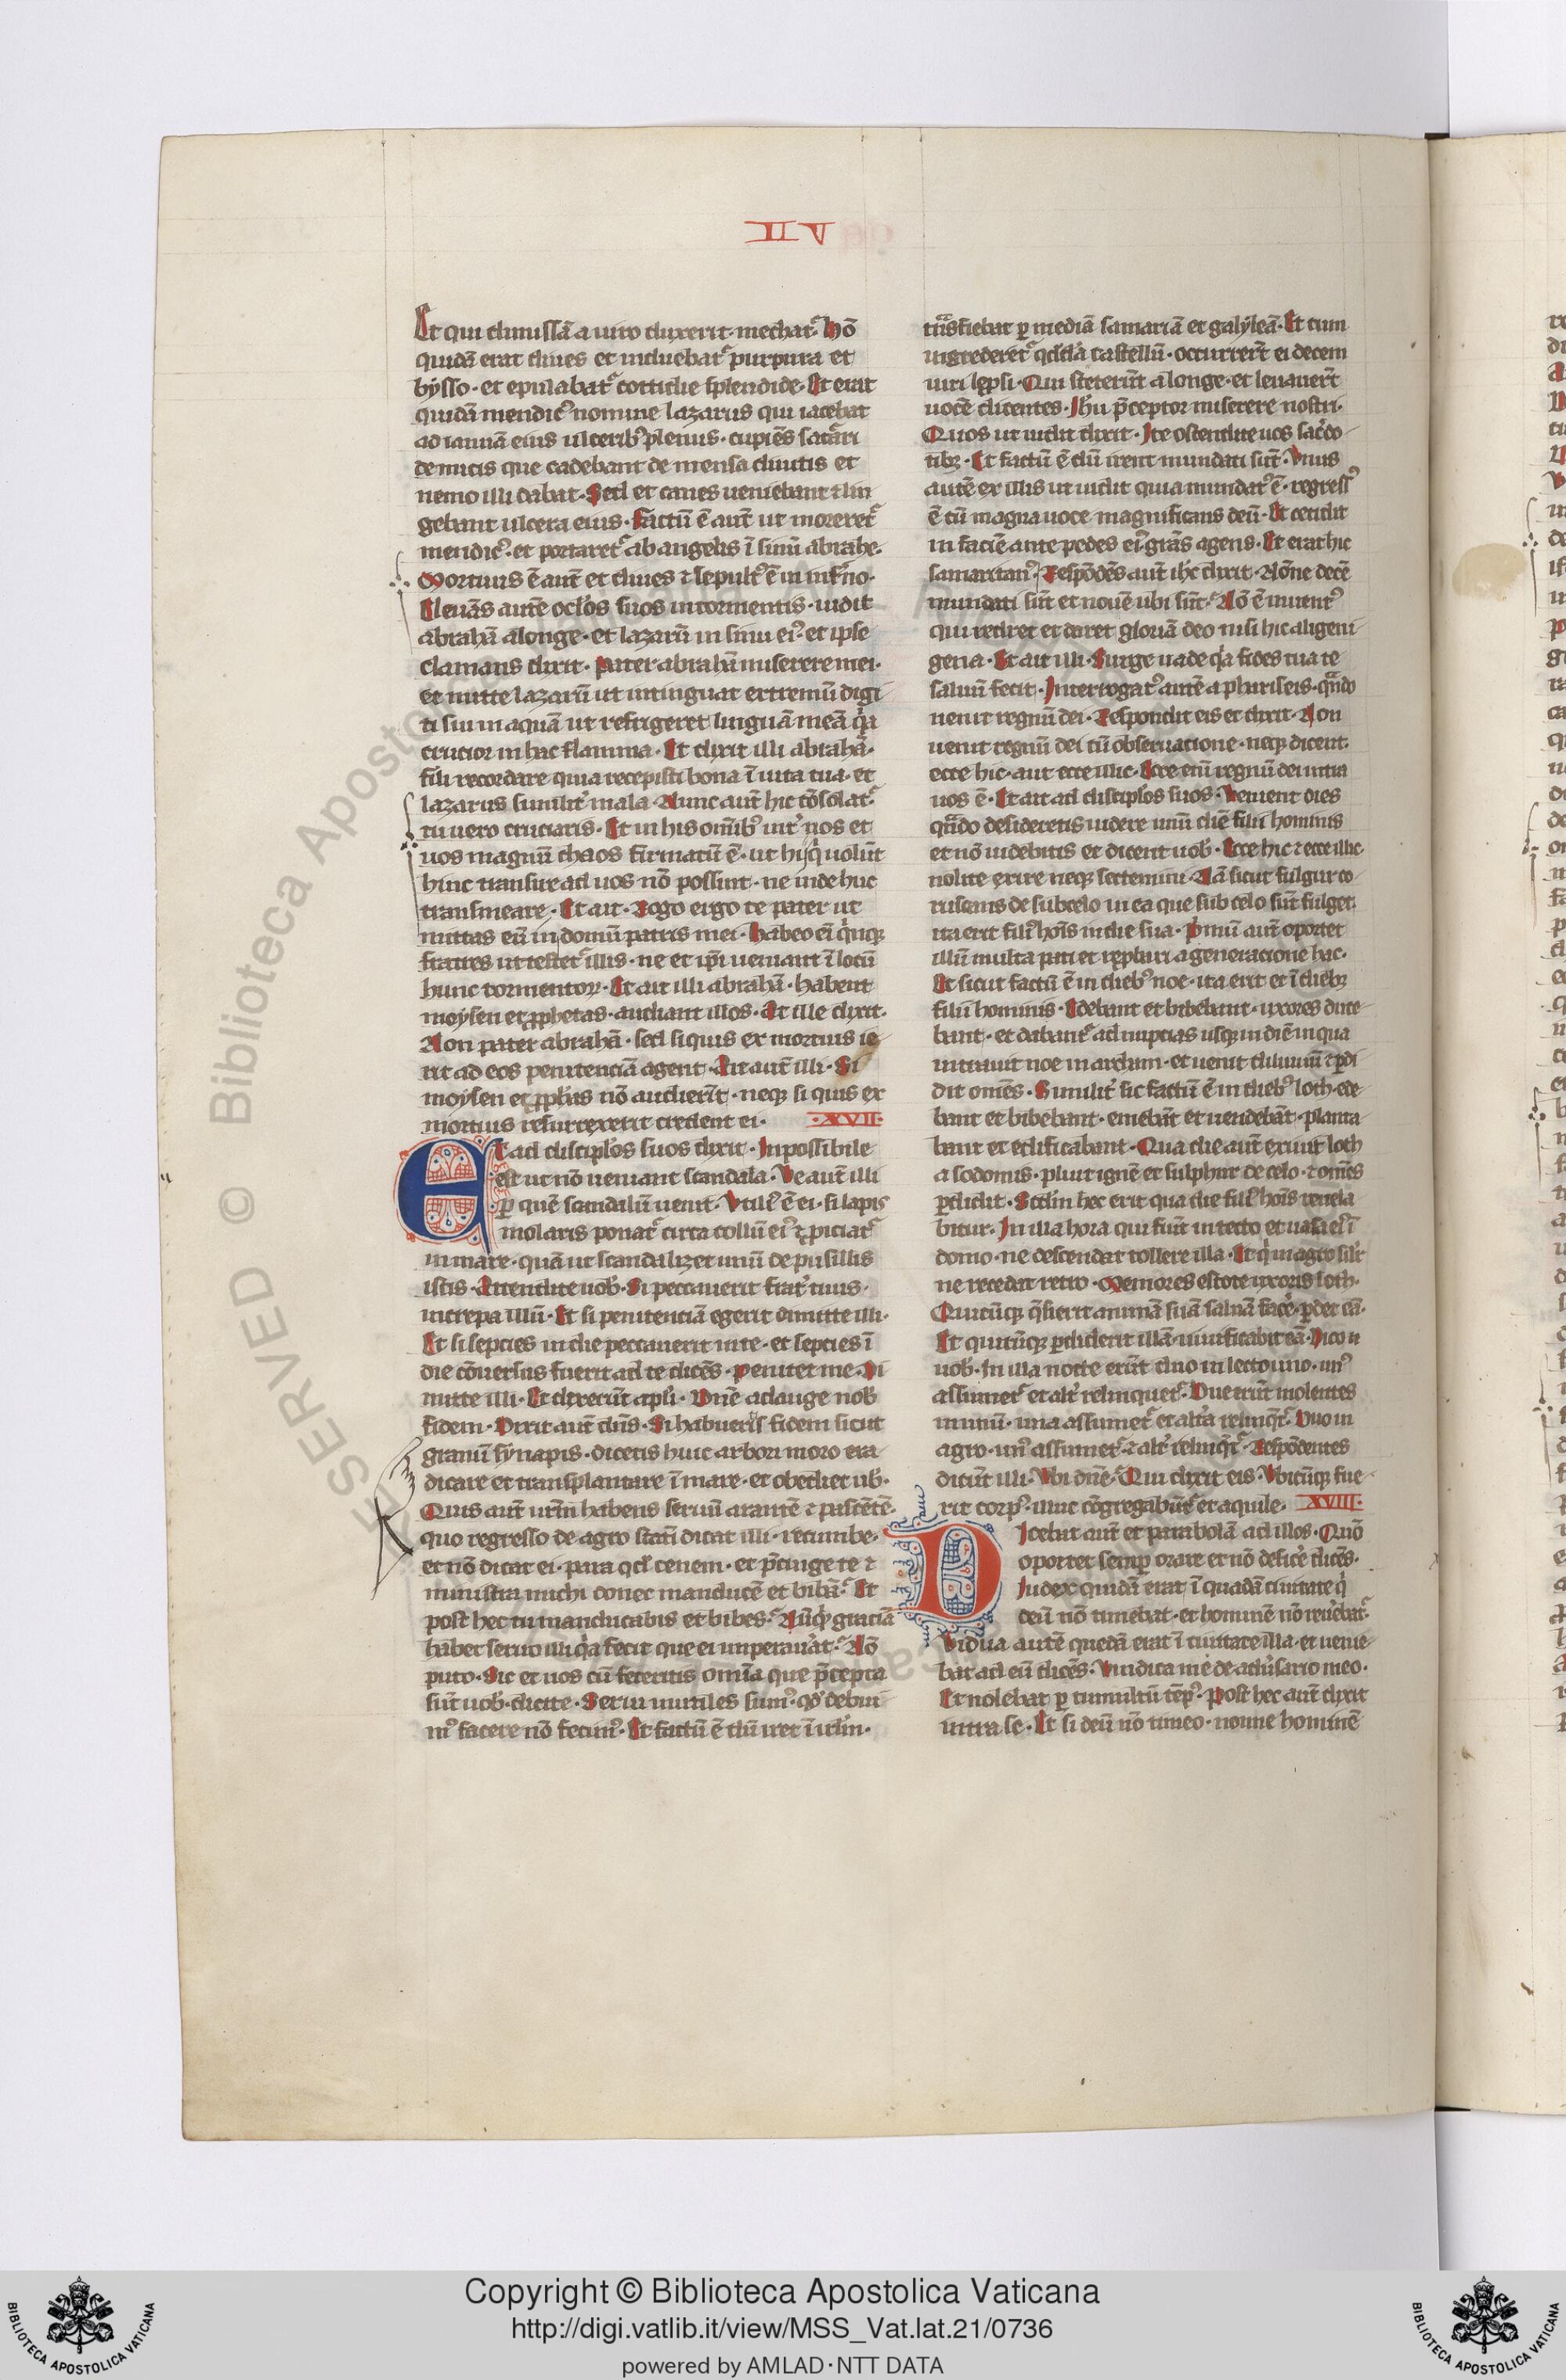 LU
Et qui dimissā a uiro duxerit mechat᷑. Hō
quidā erat diues et induebat᷑ purpura et
bysso · et epulabat᷑ cottidie splendide · Et erat
quidā mendic᷒ nomine lazarus qui iacebat
ad ianuā eius ulcerib᷒ plenus · cupiēs saturari
de micis que cadebant de mensa diuitis et
nemo illi dabat · Sed et canes ueniebant ⁊ lin
gebant ulcera eius · Factū ē aut̄ ut moreret᷑
mendic᷒ · et portaret᷑ ab angelis ī sinū abrahe ·
Mortuus ē aut̄ et diues ⁊ sepult᷒ ē in inf̄no ·
Eleuās autē ocl̄os suos in tormentis · uidit
abrahā alonge · et lazarū in sinu ei᷒ · et ipse
clamans dixit · Pater abrahā miserere mei ·
et mitte lazarū ut intinguat extremū digi
ti sui in aquā ut refrigeret linguā meā q̇a
crucior in hac flamma · Et dixit illi abrahā ·
fili recordare quia recepisti bona ī uita tua · et
lazarus similit̄ mala · Nunc aut̄ hic cōsolat᷑ ·
tu uero cruciaris · Et in his om̄ib᷒ int̄ nos et
uos magnū chaos firmatū ē · ut hij q̇ uolūt
hinc transire ad uos nō possint · ne inde huc
transmeare · Et ait · Rogo ergo te pater ut
mittas eū in domū patris mei · Habeo eī q̇nqꝫ
fratres ut testet᷑ illis · ne et ip̄i ueniant ī locū
hunc tormentoꝝ · Et ait illi abrahā · habent
moysen et ꝓphetas · audiant illos · At ille dixit ·
Non pater abrahā · sed si quis ex mortuis ie
rit ad eos penitenciā agent · Ait aut̄ illi · Si
moysen et ꝓph̄as nō audierīt · neqꝫ si quis ex
mortuis resurrexerit credent ei · · XVII ·
Et ad discipl̄os suos dixit · Inpossibile
est ut nō ueniant scandala · Ve aut̄ illi
ꝑ quē scandalū uenit · Vtil᷒ ē ei · si lapis
molaris ponat᷑ circa collū ei᷒ ⁊ ꝓiciat᷑
in mare · quā ut scandalizet unū de pusillis
istis · Attendite uob᷒ · Si peccauerit frat̄ tuus ·
increpa illū · Et si penitenciā egerit dimitte illi ·
Et si sepcies in die peccauerit in te · et sepcies ī
die cōuersus fuerit ad te dicēs · Penitet me · Di
mitte illi · Et dixerūt apl̄i · Dn̄e adauge nob᷒
fidem · Dixit aut̄ dn̄s · Si habueritis fidem sicut
granū synapis · dicetis huic arbori moro era
dicare et transplantare ī mare · et obediet uob᷒ ·
Quis aut̄ ur̄m habens seruū arantē ⁊ pascētē ·
quo regresso de agro statī dicat illi · recumbe ·
et nō dicat ei · para qd̄ cenem · et p̄cinge te ⁊
ministra michi donec manducē et bibā · Et
post hec tu manducabis et bibes · Nūqd̄ graciā
habet seruo illi q̇a fecit que ei imperauāt · Nō
puto · Sic et uos cū feceritis omīa que p̄cepta
sūt uob᷒ · dicite · Serui inutiles sum᷒ · qd̄ debui
m᷒ facere nō fecim᷒ · Et factū ē dū iret ī irl̄m ·
trāsiebat ꝑ mediā samariā et galyleā · Et cum
ingrederet᷑ qd̄dā castellū · occurrer̄t ei decem
uiri lepsi · Qui steterūt alonge · et leuauer̄t
uocē dicentes · Ih̄u p̄ceptor miserere nostri ·
Quos ut uidit dixit · Ite ostendite uos sac̄do
tibꝫ · Et factū ē dū irent mundati sūt · Vnus
autē ex illis ut uidit quia mundat᷒ ē · regress᷒
ē cū magna uoce magnificans deū · Et cecidit
in faciē ante pedes ei᷒ grās agens · Et erat hic
samaritan᷒ · Respōdēs aut̄ ih̄c dixit · Nōne decē
mundati sūt et nouē ubi sūt · Nō ē inuent᷒
qui rediret et daret gloriā deo nisi hic aligeni
gena · Et ait illi · Surge uade q̇a fides tua te
saluū fecit · Interrogat᷒ autē a phariseis · qn̄do
uenit regnū dei · Respondit eis et dixit · Non
uenit regnū dei cū obseruatione · neqꝫ dicent
ecce hic · aut ecce illic · Ecce enī regnū dei intra
uos ē · Et ait ad discipl̄os suos · Venient dies
qn̄do desideretis uidere unū diē filii hominis
et nō uidebitis et dicent uob᷒ · Ecce hic ⁊ ecce illic ·
nolite exire neqꝫ sectemini · Nā sicut fulgur co
ruscans de sub celo in ea que sub celo sūt fulget ·
ita erit fili᷒ hoīs in die sua · Pimū aut̄ oportet
illū multa pati et reprobari a generacione hac ·
Et sicut factū ē in dieb᷒ noe · ita erit et ī diebꝫ
filii hominis · Edebant et bibebant · uxores duce
bant · et dabant᷑ ad nupcias usqꝫ in diē in qua
intrauit noe in archam · et uenit diluuiū ⁊ ꝑdi
dit om̄es · Similit̄ sic factū ē in dieb᷒ loth · ede
bant et bibebant · emebāt et uendebāt · planta
bant et edificabant · Qua die aut̄ exiuit loth
a sodomis · pluit ignē et sulphur de celo · ⁊ om̄es
ꝑdidit · Scd̄m hec erit qua die fili᷒ hoīs reuela
bitur · In illa hora qui fuīt in tecto et uasa ei᷒ ī
domo · ne descendat tollere illa · Et q̇ in agro silr̄
ne redeat retro · Memores estote uxoris loth ·
Quicūqꝫ q̄sierit animā suā saluā face · ꝑdet eā ·
Et quicūqꝫ ꝑdiderit illā · uiuificabit eā · Dico u
uob᷒ · In illa nocte erūt duo in lecto uno · un᷒
assumet᷑ et alt̄ relinquet᷑ · Due erūt molentes
in unū · una assumet᷑ et alt̄a relinq̄t᷑ · Duo in
agro · un᷒ assumet᷑ ⁊ alt̄ relinq̄t᷑ · Respōdentes
dicūt illi · Vbi dn̄e · Qui dixit eis · Vbicūqꝫ fue
rit corp᷒ · illuc cōgregabūt᷑ et aquile · · XVIII ·
Dicebat aut̄ et parabolā ad illos · Quō
oportet semꝑ orare et nō defic̄e dicēs ·
Iudex quidā erat ī quadā ciuitate q̇
deū nō timebat · et hominē nō reu̇ebat᷑ ·
Vidua autē quedā erat ī ciuitate illa · et uenie
bat ad eū dicēs · Vindica me de adu̇sario meo ·
Et nolebat ꝑ multū tēp᷒ · Post hec aut̄ dixit
intra se · Et si deū nō timeo · nonne hominē
Copyright © Biblioteca Apostolica Vaticana
http://digi.vatlib.it/view/MSS_Vat.lat.21/0736
powered by AMLAD·NTT DATA